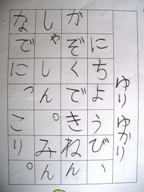 ゆり ゆかり
にちようび、
かぞくできねん
しゃしん。みん
なでにっこり。